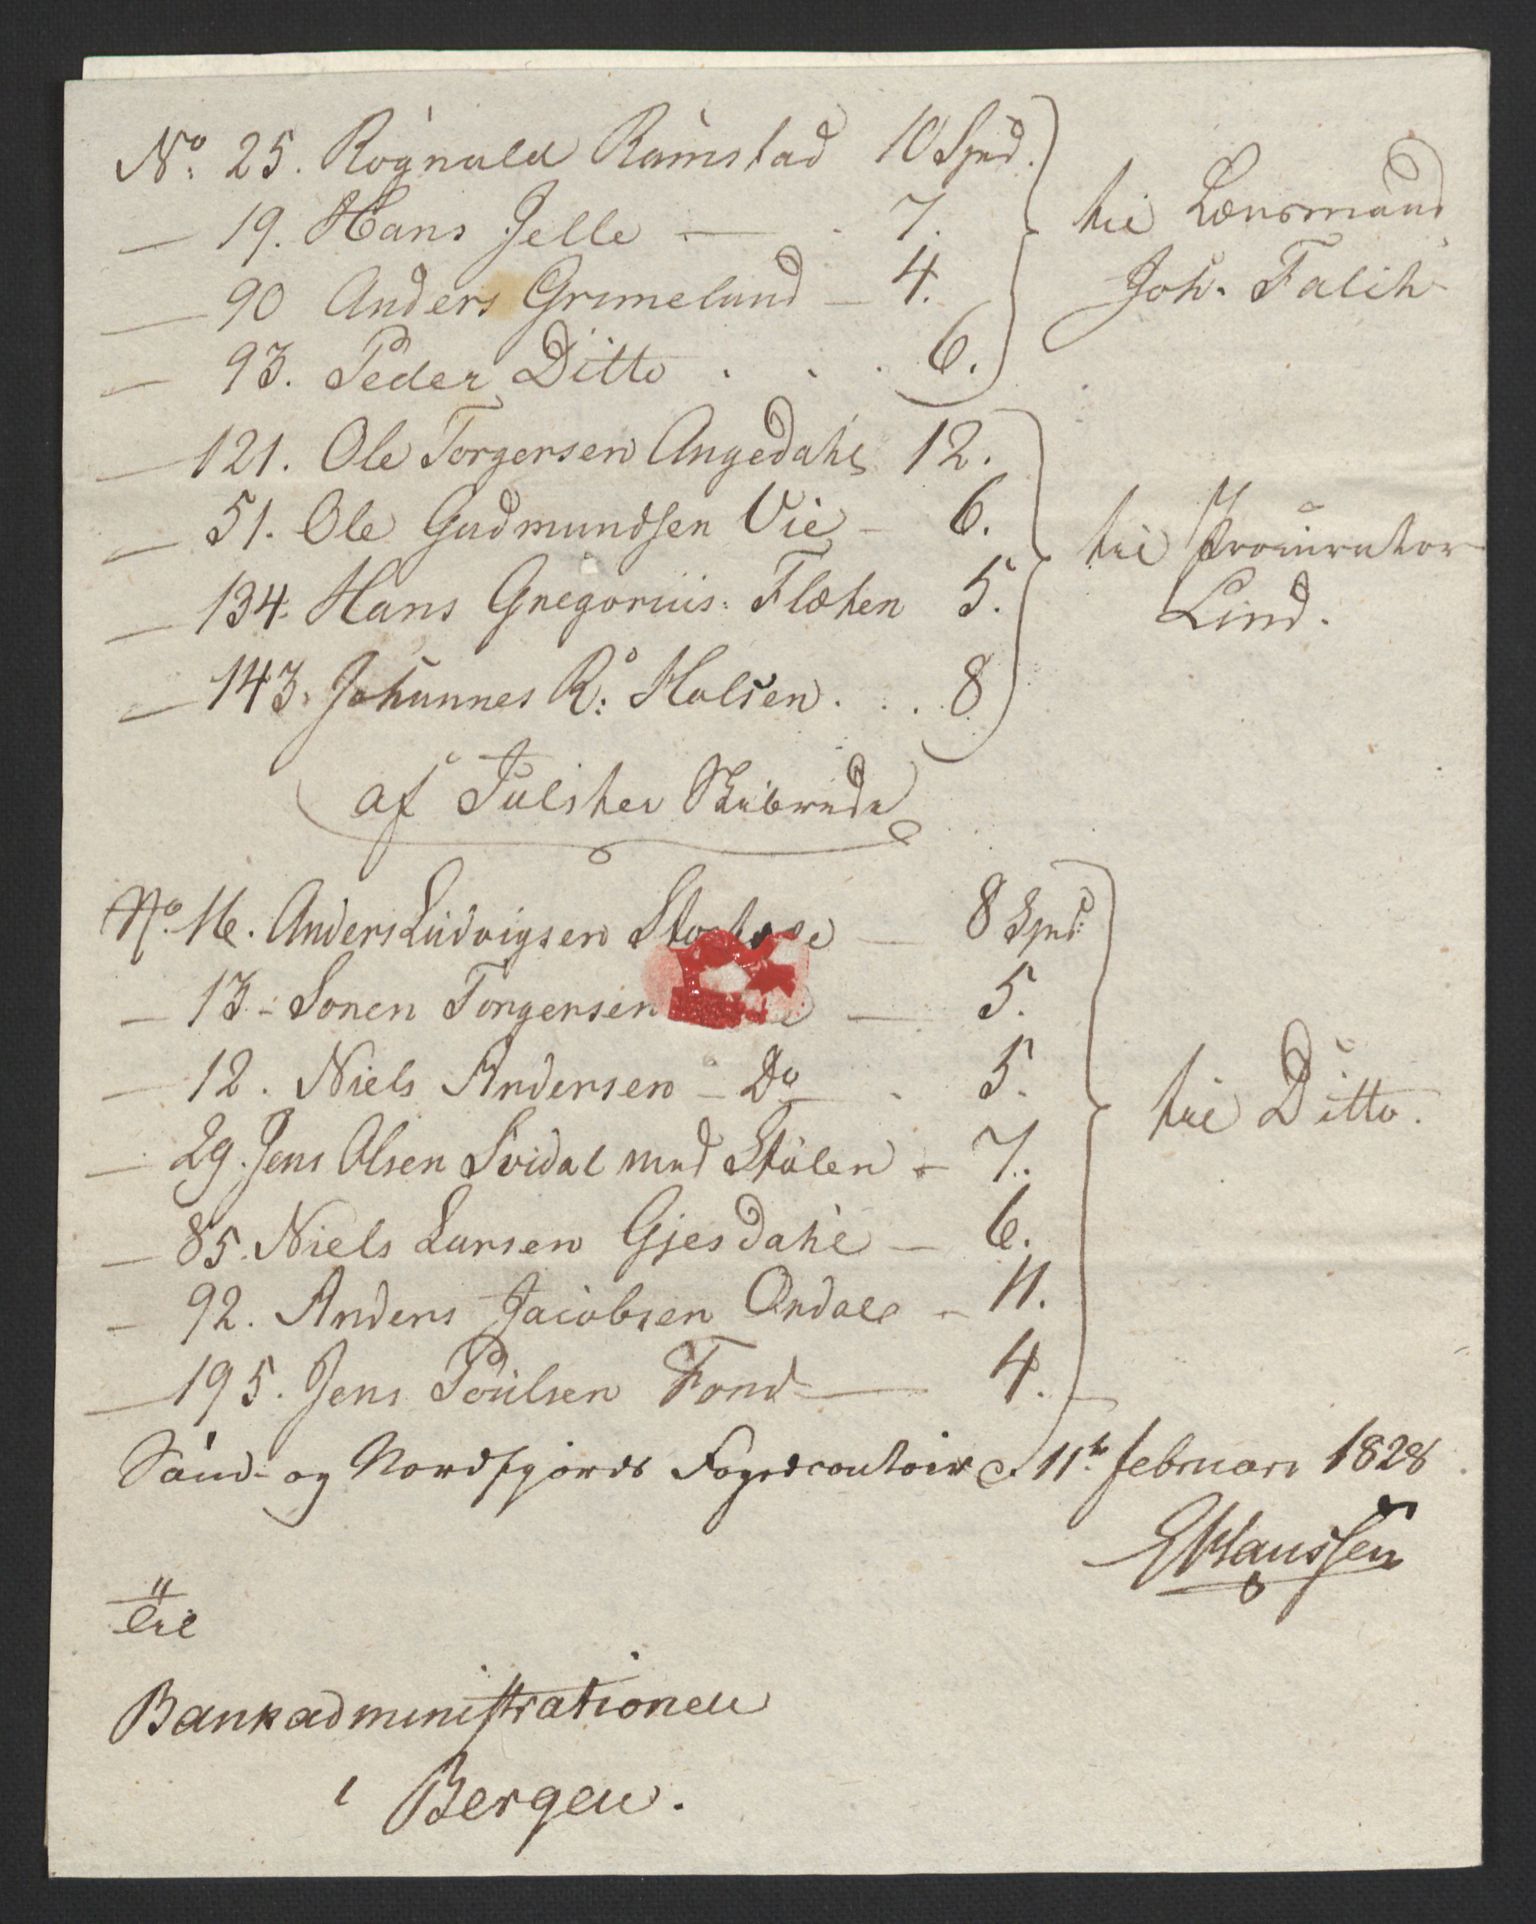 No. 25. Rognald Ramstad 10 Spd. til Lænsmand
— 19. Hans Jelle — . 7. Joh. Falch
— 90 Anders Grimelund — 4.
— 93. Peder Ditto . . . 6.
— 121. Ole Torgersen Angedahl 12.
— 51. Ole Gudmundsen Vie — 6. til Procurator
— 134. Hans Gregorius: Flæhen 5. Lind.
— 143. Johannes R: Halsen . . . 8
af Julster Skibrede
No. 16. Anders Ludvigsen — 8 Spd:
— 13 - Soren Torgersen — 5.
— 12. Niels Andersen — Do . 5. til Ditto.
— 29. Jens Olsen Svidal med Stølen - 7.
— 85. Niels Larsen Gjesdahl — 6.
— 92. Anders Jacobsen Ordal — 11.
— 195. Jens Poulsen Fond — 4.
Sønd- og Nordfjords Fogedcontoir d. 11te februari 1828
EHanssen
Til
Bankadministrationen
i Bergen.